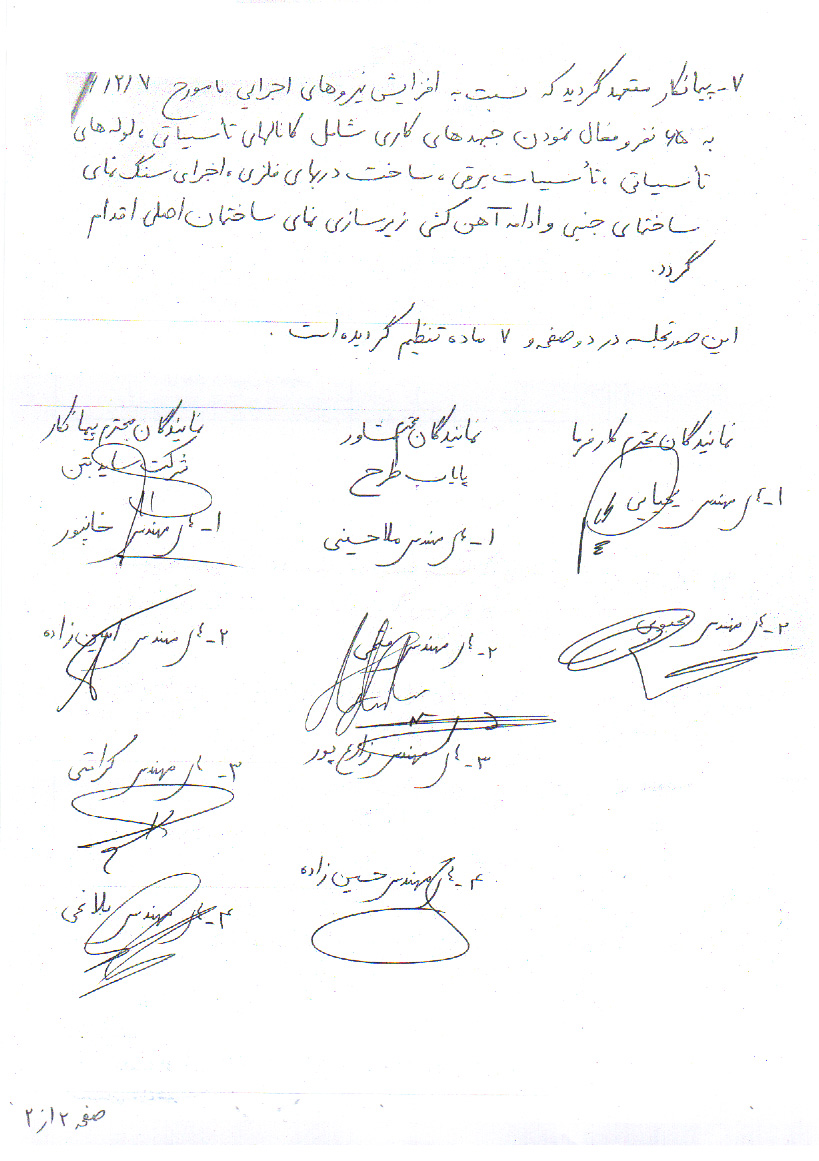 ۷- پیمانکار متعهد گردید که نسبت به افزایش نیروهای اجرایی تا مورخ ۷/۲/
به ۶۵ نفر و فعال نمودن جبهه های کاری شامل کانالهای تأسیساتی، لوله های
تأسیساتی، تأسیسات برقی، ساخت دربهای فلزی، اجرای سنگ نمای
ساختمای جنبی و ادامه آهن کشی زیرسازی نمای ساختمان اصلی اقدام
گردد.
این صورتجلسه در دو صفحه و ۷ ماده تنظیم گردیده است.
نمایندگان محترم کارفرما
۱- آقای مهندس یحیایی
۲- آقای مهندس محبوبی
نمایندگان محترم مشاور
پایاب طرح
۱- آقای مهندس ملاحسینی
۲- آقای مهندس
۳- آقای مهندس زارع پور
۴- آقای مهندس حسین زاده
نمایندگان محترم پیمانکار
شرکت ساید بتن
۱- آقای مهندس خانپور
۲- آقای مهندس امین زاده
۳- آقای مهندس کرامتی
۴- آقای مهندس بلاغی
صفحه ۲ از ۲